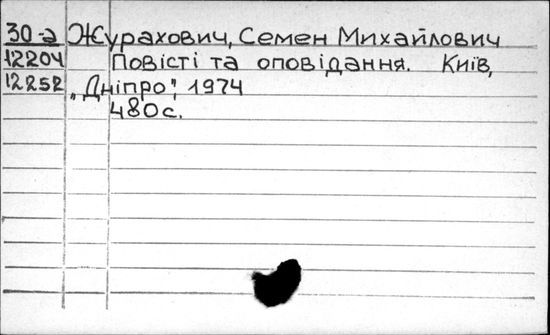 30-а Журахович, Семен Михайлович
12204 Повісті та оповідання. Київ,
12252 „Дніпро", 1974
480с.